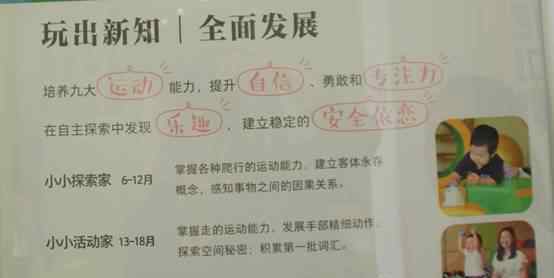 玩出新知｜全面发展
培养九大 运动 能力，提升 自信 、勇敢和 专注力
在自主探索中发现 乐趣 ，建立稳定的 安全依恋
小小探索家 6-12月
掌握各种爬行的运动能力，建立客体永存
概念，感知事物之间的因果关系。
小小活动家 13-18月
掌握走的运动能力，发展手部精细动作，
探索空间秘密；积累第一批词汇。